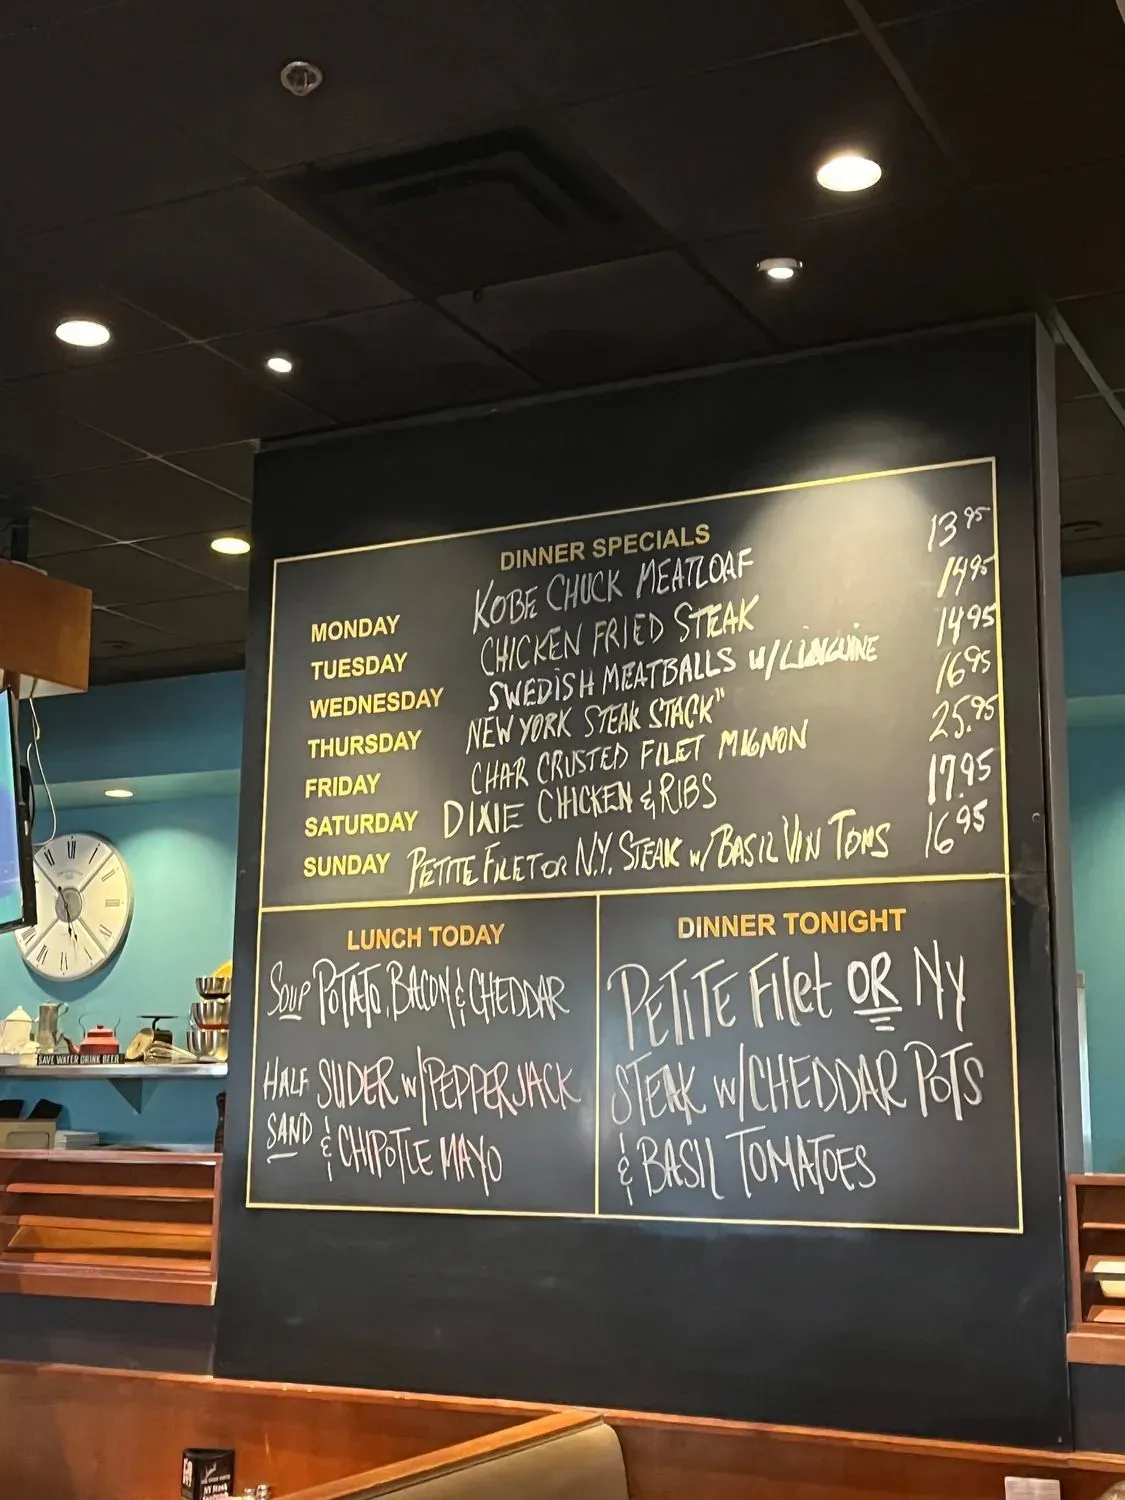 DINNER SPECIALS
MONDAY KOBE CHUCK MEATLOAF 13.95
TUESDAY CHICKEN FRIED STEAK 14.95
WEDNESDAY SWEDISH MEATBALLS W/LINGUINE 14.95
THURSDAY NEW YORK STEAK STACK" 16.95
FRIDAY CHAR CRUSTED FILET MIGNON 25.95
SATURDAY DIXIE CHICKEN & RIBS 17.95
SUNDAY PETITE FILET OR N.Y. STEAK w/BASIL VIN TOMS 16.95
LUNCH TODAY
SOUP POTATO, BACON & CHEDDAR
HALF SLIDER w/PEPPERJACK
SAND & CHIPOTLE MAYO
DINNER TONIGHT
PETITE Filet OR NY
STEAK w/CHEDDAR POTS
& BASIL TOMATOES
SAVE WATER DRINK BEER